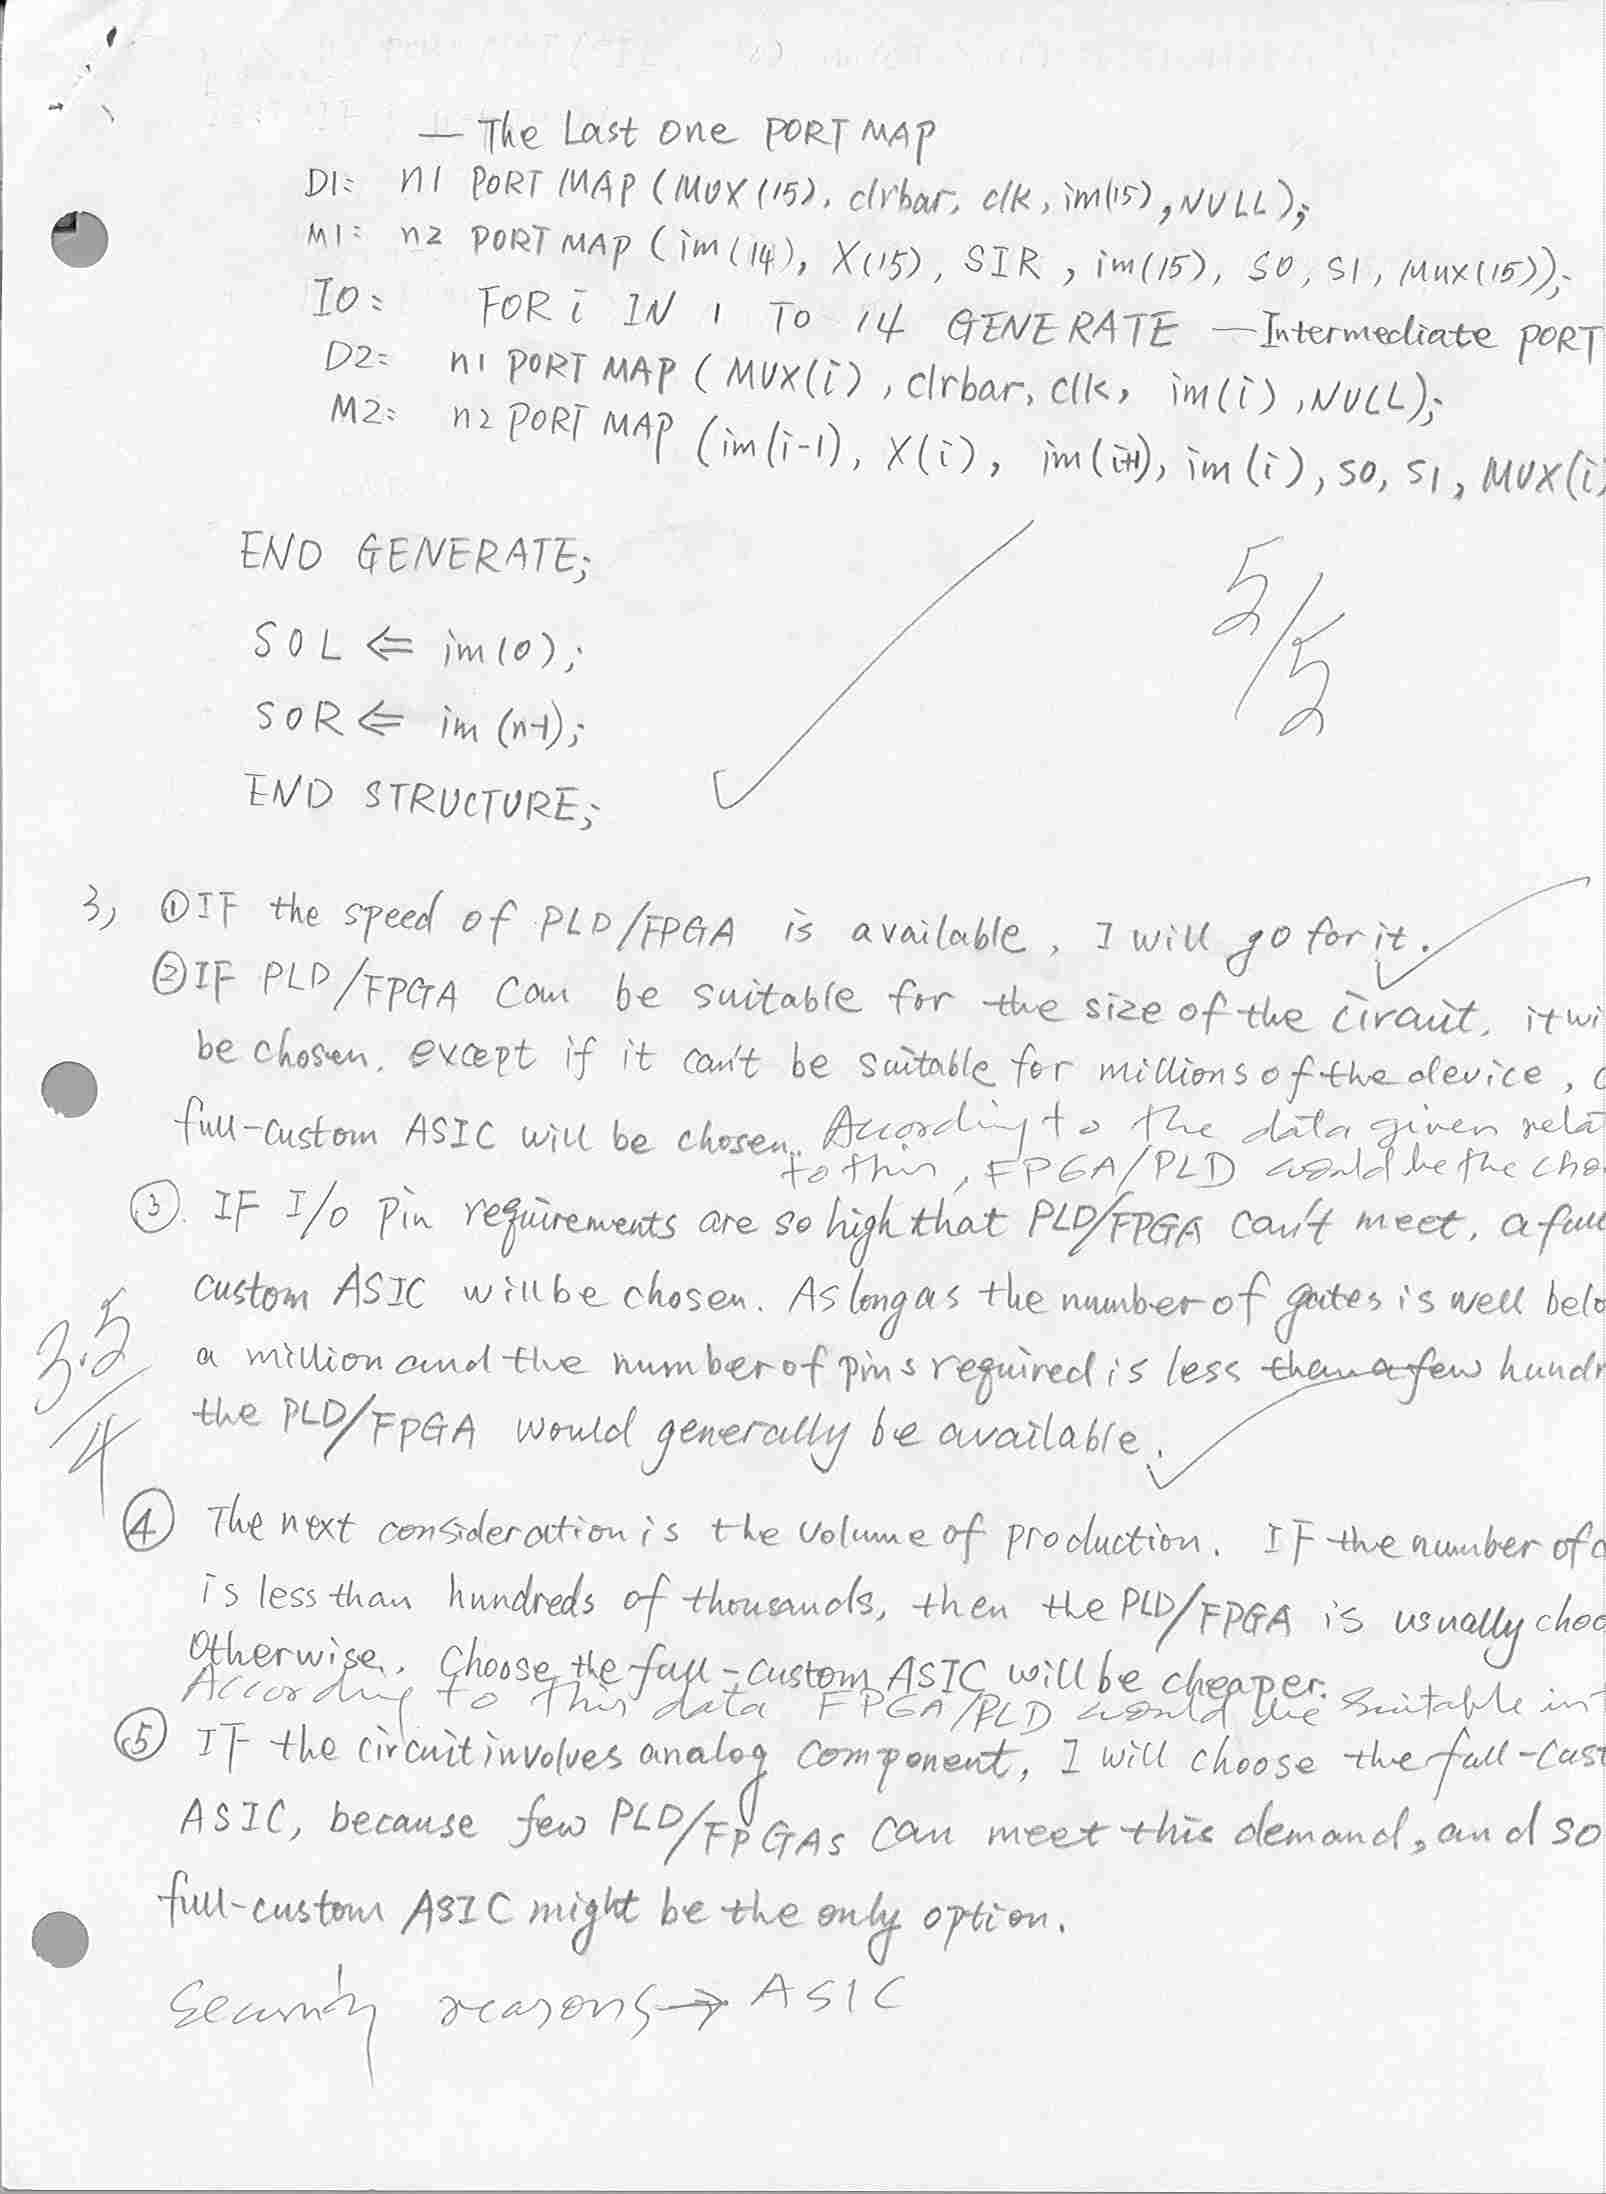 — The Last one PORT MAP
D1: n1 PORT MAP (MUX(15), clrbar, clk, im(15), NULL);
M1: n2 PORT MAP (im(14), X(15), SIR, im(15), S0, S1, Mux(15));
I0: FOR i IN 1 TO 14 GENERATE — Intermediate PORT
D2: n1 PORT MAP (MUX(i), clrbar, clk, im(i), NULL);
M2: n2 PORT MAP (im(i-1), X(i), im(i+1), im(i), S0, S1, MUX(i)
END GENERATE;
5/5
SOL <= im(0);
SOR <= im(n-1);
END STRUCTURE;
3, ① IF the speed of PLD/FPGA is available, I will go for it.
② IF PLD/FPGA can be suitable for the size of the circuit, it wi
be chosen, except if it can't be suitable for millions of the device,
full-custom ASIC will be chosen. According to the data given rela
to this, FPGA/PLD would be the cho
③. IF I/O Pin requirements are so high that PLD/FPGA can't meet, a full
custom ASIC will be chosen. As long as the number of gates is well belo
3.5/4
a million and the number of pins required is less than a few hundr
the PLD/FPGA would generally be available.
④ The next consideration is the volume of production. IF the number of
is less than hundreds of thousands, then the PLD/FPGA is usually choo
Otherwise, Choose the full-custom ASIC will be cheaper.
According to this data FPGA/PLD would be suitable in
⑤ IF the circuit involves analog component, I will choose the full-cust
ASIC, because few PLD/FPGAs can meet this demand, and so
full-custom ASIC might be the only option.
Security reasons → ASIC